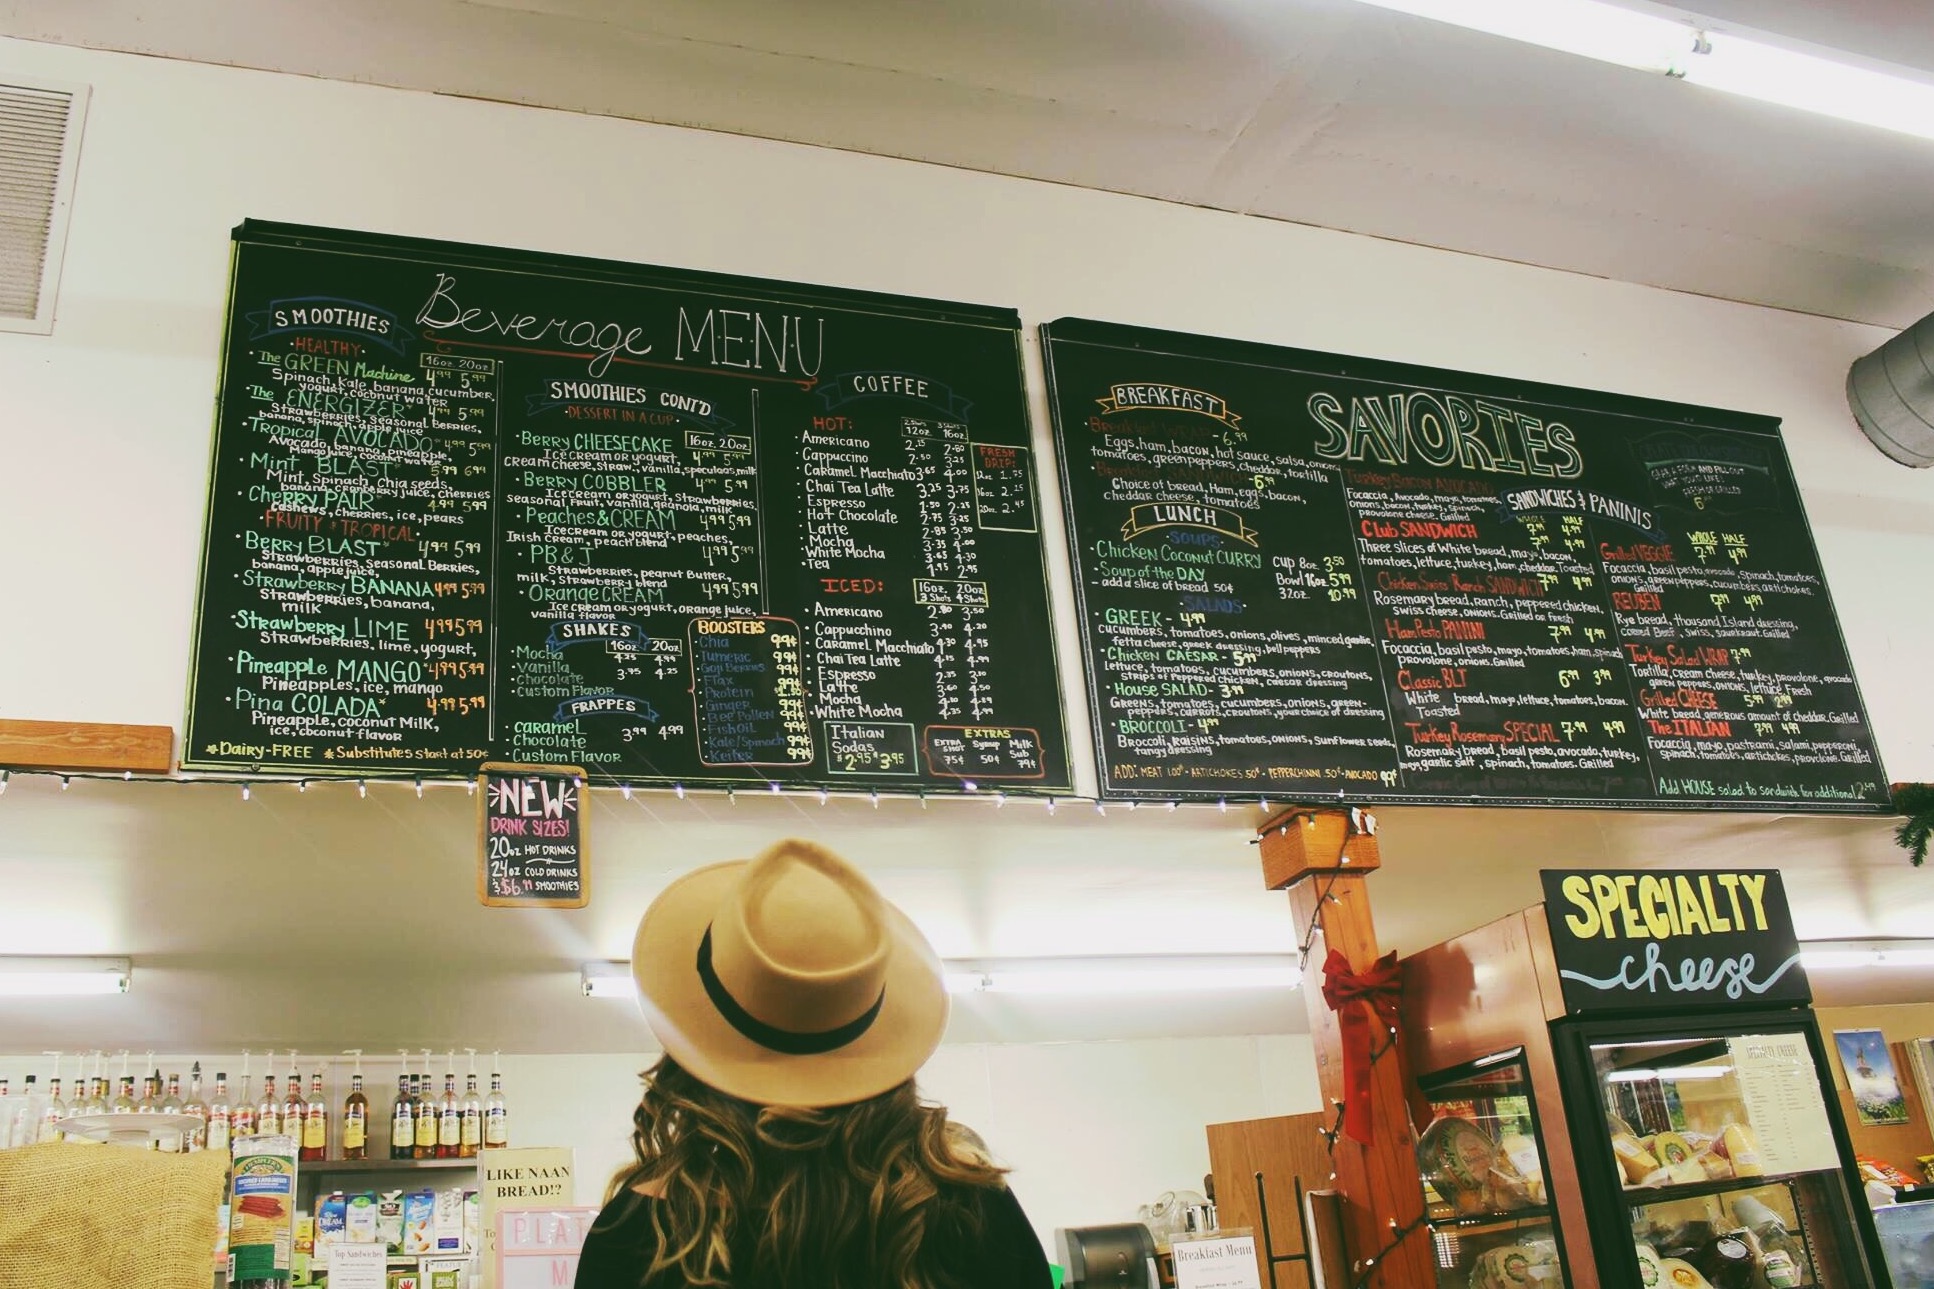 Beverage MENU
SMOOTHIES
·HEALTHY·
16oz. 20oz.
·The GREEN Machine 4.99 5.99
Spinach, Kale, banana, cucumber,
yogurt, coconut water
·The ENERGIZER* 4.99 5.99
Strawberries, seasonal Berries,
banana, spinach, apple juice
·Tropical AVOCADO* 4.99 5.99
Avocado, banana, pineapple,
Mango juice, coconut water
·Mint BLAST* 5.99 6.99
Mint, Spinach, Chia seeds,
banana, cranberry juice, cherries
·Cherry PAIR* 4.99 5.99
Cashews, cherries, ice, pears
·FRUITY & TROPICAL·
·Berry BLAST* 4.99 5.99
Strawberries, seasonal Berries,
banana, apple juice,
·Strawberry BANANA 4.99 5.99
Strawberries, banana,
milk
·Strawberry LIME 4.99 5.99
Strawberries, lime, yogurt,
·Pineapple MANGO* 4.99 5.99
Pineapples, ice, mango
·Pina COLADA* 4.99 5.99
Pineapple, coconut Milk,
ice, coconut flavor
*Dairy-FREE *Substitutes start at 50¢
SMOOTHIES CONT'D
·DESSERT IN A CUP·
16oz. 20oz.
·Berry CHEESECAKE 4.99 5.99
Ice cream or yogurt,
cream cheese, straw., vanilla, speculoos, milk
·Berry COBBLER 4.99 5.99
Ice cream or yogurt, Strawberries,
seasonal fruit, vanilla, granola, milk
·Peaches & CREAM 4.99 5.99
Ice cream or yogurt, peaches,
Irish cream, peach blend
·PB & J 4.99 5.99
Strawberries, peanut Butter,
milk, Strawberry blend
·Orange CREAM 4.99 5.99
Ice cream or yogurt, orange juice,
vanilla flavor
SHAKES
16oz 20oz
·Mocha 4.25 4.99
·Vanilla
·Chocolate 3.75 4.25
·Custom Flavor
FRAPPES
·Caramel
·Chocolate 3.99 4.99
·Custom Flavor
BOOSTERS
·Chia 99¢
·Turmeric 99¢
·Goji Berries 99¢
·Flax 99¢
·Protein
·Ginger 99¢
·Bee Pollen 99¢
·Fish Oil 99¢
·Kale/Spinach 99¢
·Keifer 99¢
COFFEE
HOT:
12oz 16oz
·Americano 2.15 2.60
·Cappuccino 2.50 3.25
·Caramel Macchiato 3.65 4.00
·Chai Tea Latte 3.25 3.75
·Espresso 1.50 2.25
·Hot Chocolate 2.75 3.25
·Latte
·Mocha
·White Mocha
·Tea 1.95 2.95
FRESH
DRIP:
12oz. 1.75
16oz. 2.25
20oz. 2.45
ICED:
16oz. 20oz.
3 Shots 4 Shots
·Americano 3.50
·Cappuchino 3.90 4.20
·Caramel Macchiato 4.30 4.95
·Chai Tea Latte 4.15 4.99
·Espresso
·Latte
·Mocha
·White Mocha 4.35 4.99
Italian
Sodas
$2.95 $3.95
EXTRAS
EXTRA SHOT 75¢
Syrup 50¢
Milk Sub 79¢
NEW
DRINK SIZES!
20oz HOT DRINKS
24oz COLD DRINKS
SMOOTHIES
SAVORIES
BREAKFAST
·Breakfast WRAP - 6.99
Eggs, ham, bacon, hot sauce, salsa, onion
tomatoes, green peppers, cheddar, tortilla
·Breakfast SANDWICH - 6.99
Choice of bread, Ham, eggs, bacon,
cheddar cheese, tomatoes
LUNCH
·SOUPS·
·Chicken Coconut CURRY
·Soup of the DAY
- add a slice of bread 50¢
Cup 8oz. 3.50
Bowl 16oz 5.99
32oz. 10.99
·SALADS·
·GREEK - 4.99
cucumbers, tomatoes, onions, olives, minced garlic,
fetta cheese, greek dressing, bell peppers
·Chicken CAESAR - 5.99
lettuce, tomatoes, cucumbers, onions, croutons,
strips of Peppered Chicken, caesar dressing
·House SALAD - 3.99
Greens, tomatoes, cucumbers, onions, green-
peppers, carrots, croutons, your choice of dressing
·BROCCOLI - 4.99
Broccoli, Raisins, tomatoes, onions, Sunflower seeds,
tangy dressing
ADD: MEAT 1.00 · ARTICHOKES .50 · PEPPERCHINNI .50 · AVOCADO 99¢
SANDWICHES & PANINIS
WHOLE HALF
Turkey Bacon AVOCADO 7.99 4.99
Focaccia, Avocado, mayo, tomatoes,
onions, bacon, turkey, spinach,
provolone cheese. Grilled
Club SANDWICH 7.99 4.99
Three slices of White bread, mayo, bacon,
tomatoes, lettuce, turkey, ham, cheddar. Toasted
Chicken Swiss Ranch SANDWICH 7.99 4.99
Rosemary bread, Ranch, peppered chicken,
Swiss cheese, onions. Grilled or fresh
Ham Pesto PANINI 7.99 4.99
Focaccia, basil pesto, mayo, tomatoes, ham, spinach
provolone, onions. Grilled
Classic BLT 6.99 3.99
White bread, mayo, lettuce, tomatoes, bacon.
Toasted
Turkey Rosemary SPECIAL 7.99 4.99
Rosemary bread, basil pesto, avocado, turkey,
mayo, garlic salt, spinach, tomatoes. Grilled
WHOLE HALF
Grilled VEGGIE 7.99 4.99
Focaccia, basil pesto, avocado, spinach, tomatoes,
onions, green peppers, cucumbers, artichokes.
REUBEN 7.99 4.99
Rye bread, thousand Island dressing,
corned Beef, swiss, sauerkraut. Grilled
Turkey Salad WRAP 7.99
Tortilla, cream cheese, turkey, provolone, avocado
green peppers, onions, lettuce. Fresh
Grilled CHEESE 5.99 2.99
White bread, generous amount of cheddar. Grilled
The ITALIAN 7.99 4.99
Focaccia, mayo, pastrami, salami, pepperoni,
spinach, tomatoes, artichokes, provolone. Grilled
Add HOUSE salad to sandwich for additional 2.49
SPECIALTY
cheese
LIKE NAAN
BREAD!?
PLAT
M
Top Sandwiches
Breakfast Menu
SPECIALTY CHEESE